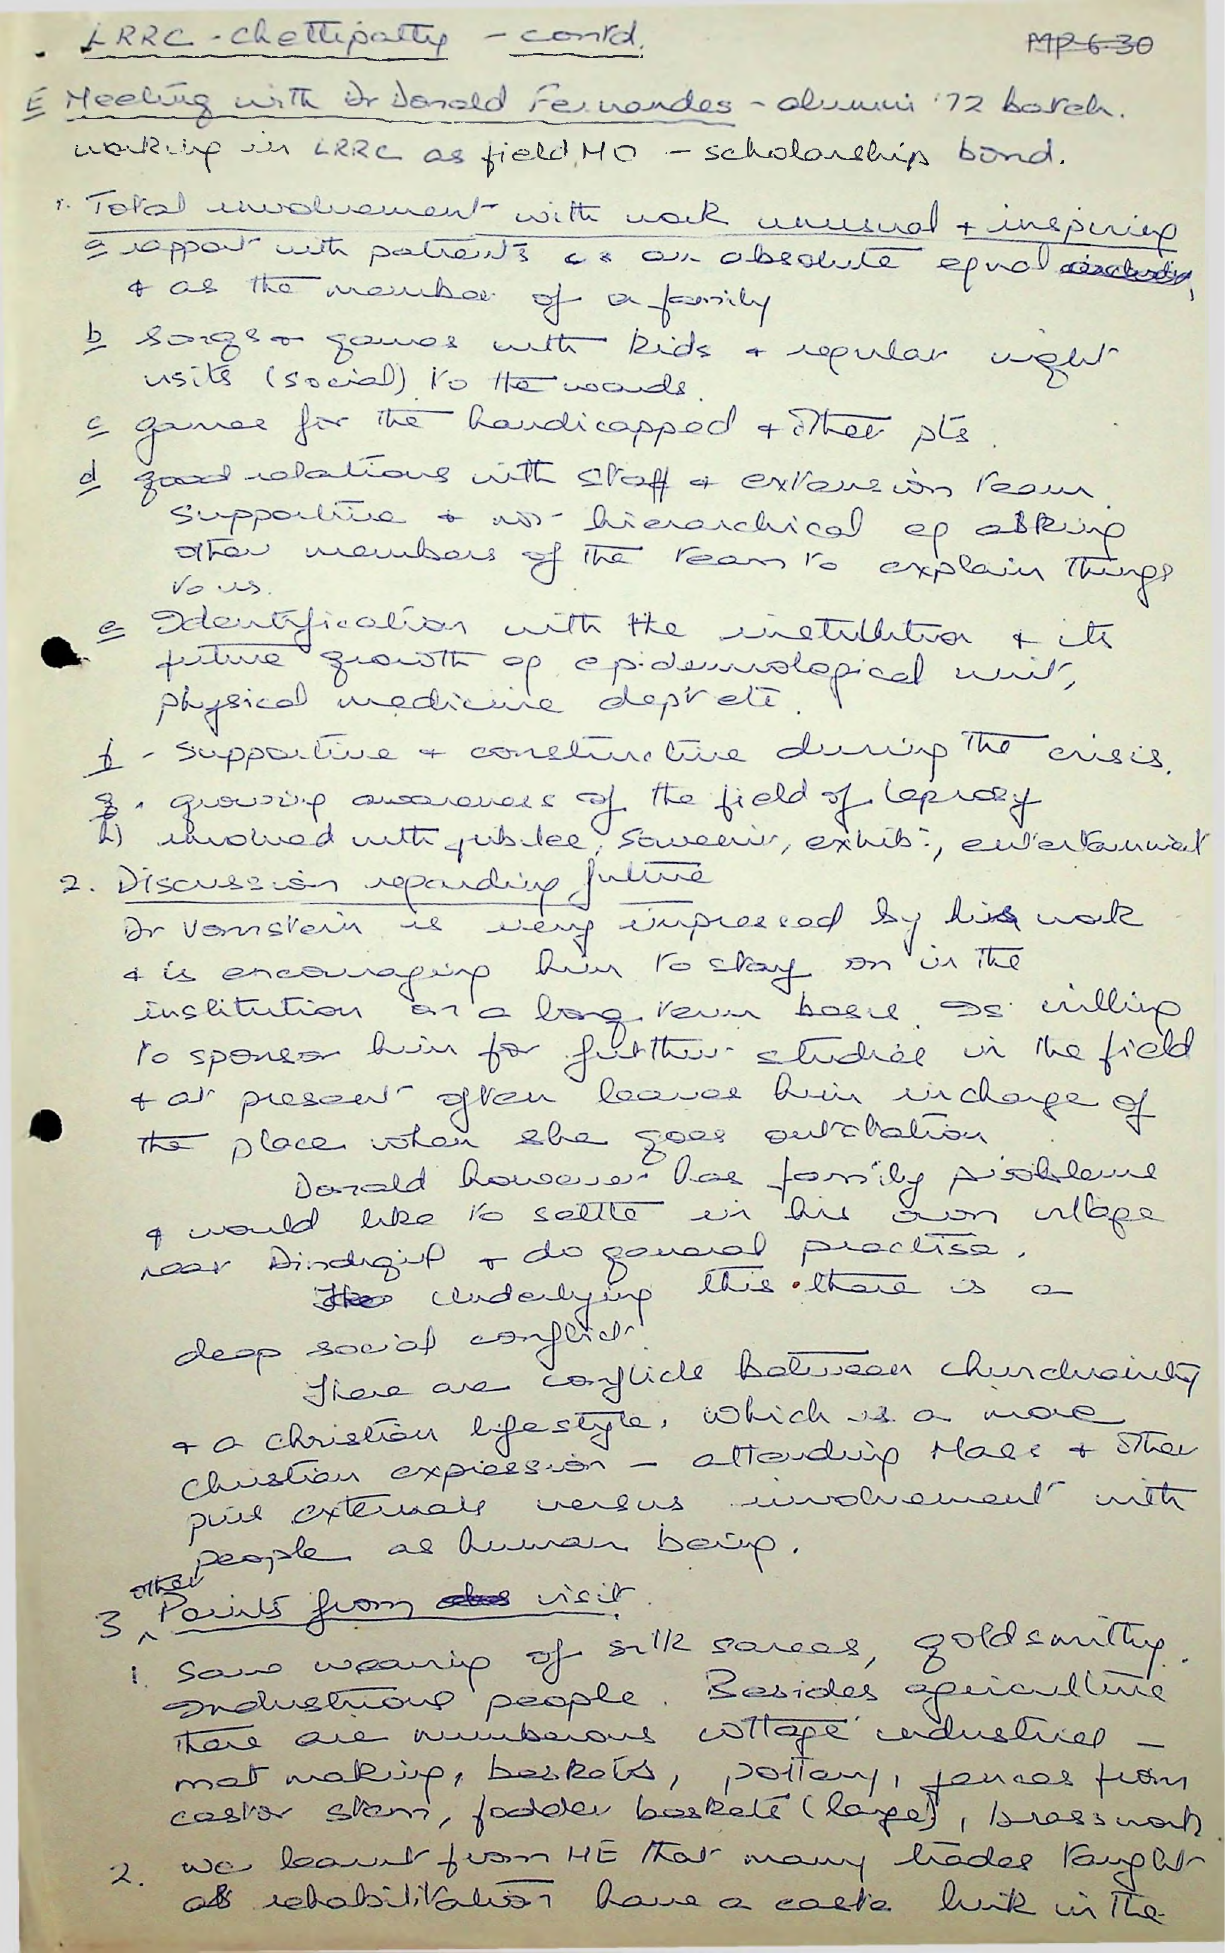 LRRC - Chettipatty - contd.
MP-6-30
E Meeting with Dr Donald Fernandes - alumni '72 batch.
working in LRRC as field MO - scholarship bond.
1. Total involvement with work unusual + inspiring
a rapport with patients as an absolute equal
+ as the member of a family
b songs + games with kids + regular night
visits (social) to the wards.
c games for the handicapped + other pts.
d good relations with staff + extension team.
supportive + not hierarchical eg asking
other members of the team to explain things
to us.
e Identification with the institution + its
future growth eg epidemiological unit,
physical medicine dept etc.
f - supportive + constructive during the crisis.
g. growing awareness of the field of leprosy
h) involved with jubilee, souvenir, exhibn, entertainment
2. Discussion regarding future
Dr Vomstein is very impressed by his work
+ is encouraging him to stay on in the
institution on a long term basis. Is willing
to sponsor him for further studies in the field
+ at present often leaves him incharge of
the place when she goes outstation
Donald however has family problems
+ would like to settle in his own village
near Dindigul + do general practise.
Underlying this there is a
deep social conflict.
There are conflicts between churchianity
+ a christian lifestyle. Which is a more
Christian expression - attending Mass + other
pure externals versus involvement with
people as human being.
3. other Points from visit.
1. Saw weaving of silk sarees, goldsmithy.
Industrious people. Besides agriculture
there are numberous cottage industries -
mat making, baskets, pottery, fences from
castor stem, fodder baskets (large), brasswork.
2. we learnt from HE that many trades taught
as rehabilitation have a caste link in the